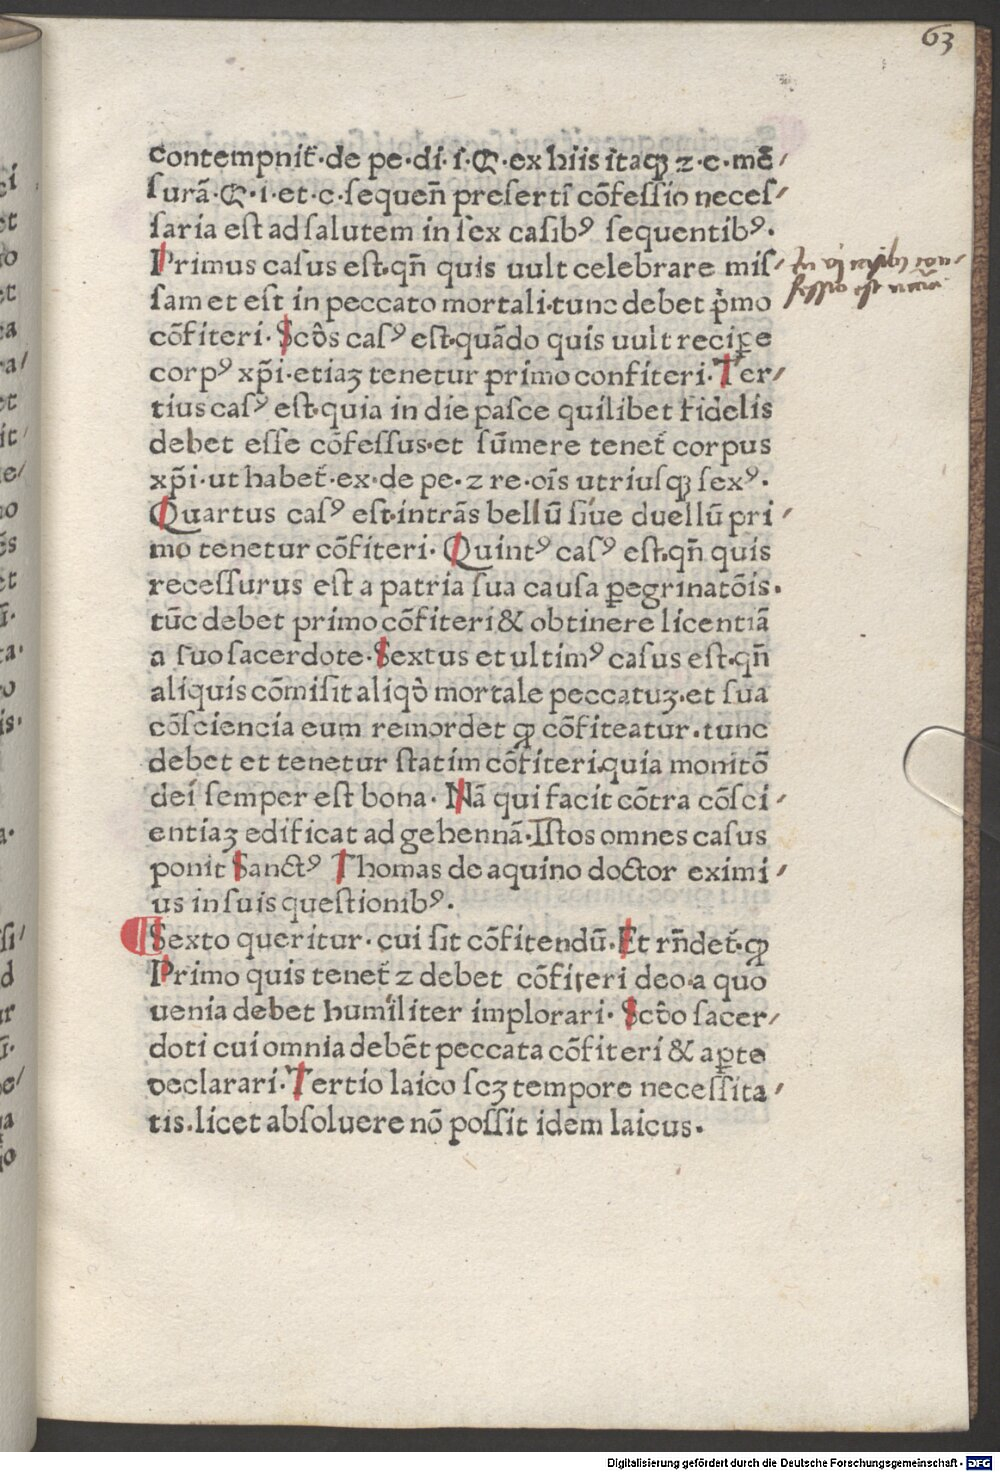 63
contempnit̄·de pe·di·ſ·Q·ex hiis itaqꝫ ⁊·c·mē/
ſurā·Q·i·et·c·ſequen̄ preſertī cōfeſſio neceſ/
ſaria eſt ad ſalutem in ſex caſibꝰ ſequentibꝰ·
Primus caſus eſt·qn̄ quis uult celebrare miſ/
ſam et eſt in peccato mortali·tunc debet p̍mo
cōfiteri·Scōs caſꝰ eſt·quādo quis uult reciꝑe
corpꝰ xp̄i·etiaꝫ tenetur primo confiteri·Ter/
tius caſꝰ eſt·quia in die paſce quilibet fidelis
debet eſſe cōfeſſus·et ſūmere tenet̄ corpus
xp̄i·ut habet̄·ex·de pe·⁊ re·oīs utriuſqꝫ ſexꝰ·
Quartus caſꝰ eſt·intrās bellū ſiue duellū pri/
mo tenetur cōfiteri·Quintꝰ caſꝰ eſt·qn̄ quis
receſſurus eſt a patria ſua cauſa ꝑegrinatōis·
tūc debet primo cōfiteri & obtinere licentiā
a ſuo ſacerdote·Sextus et ultimꝰ caſus eſt·qn̄
aliquis cōmiſit aliqȯ mortale peccatuꝫ·et ſua
cōſciencia eum remordet ꝙ cōfiteatur·tunc
debet et tenetur ſtatim cōfiteri·quia monitō
dei ſemper eſt bona·Nā qui facit cōtra cōſci/
entiaꝫ edificat ad gehennā·Iſtos omnes caſus
ponit Sanctꝰ Thomas de aquino doctor eximi/
us in ſuis queſtionibꝰ·
Sexto queritur·cui ſit cōfitendū·Et rn̄det̄·ꝙ
Primo quis tenet̄ ⁊ debet cōfiteri deo·a quo
uenia debet humiliter implorari·Scḋo ſacer/
doti cui omnia debēt peccata cōfiteri & aꝑte
declarari·Tertio laico ſcꝫ tempore neceſſita/
tis·licet abſoluere nō poſſit idem laicus·
In vj caſibꝫ con-
feſſio eſt neceſſaria
Digitalisierung gefördert durch die Deutsche Forschungsgemeinschaft - DFG